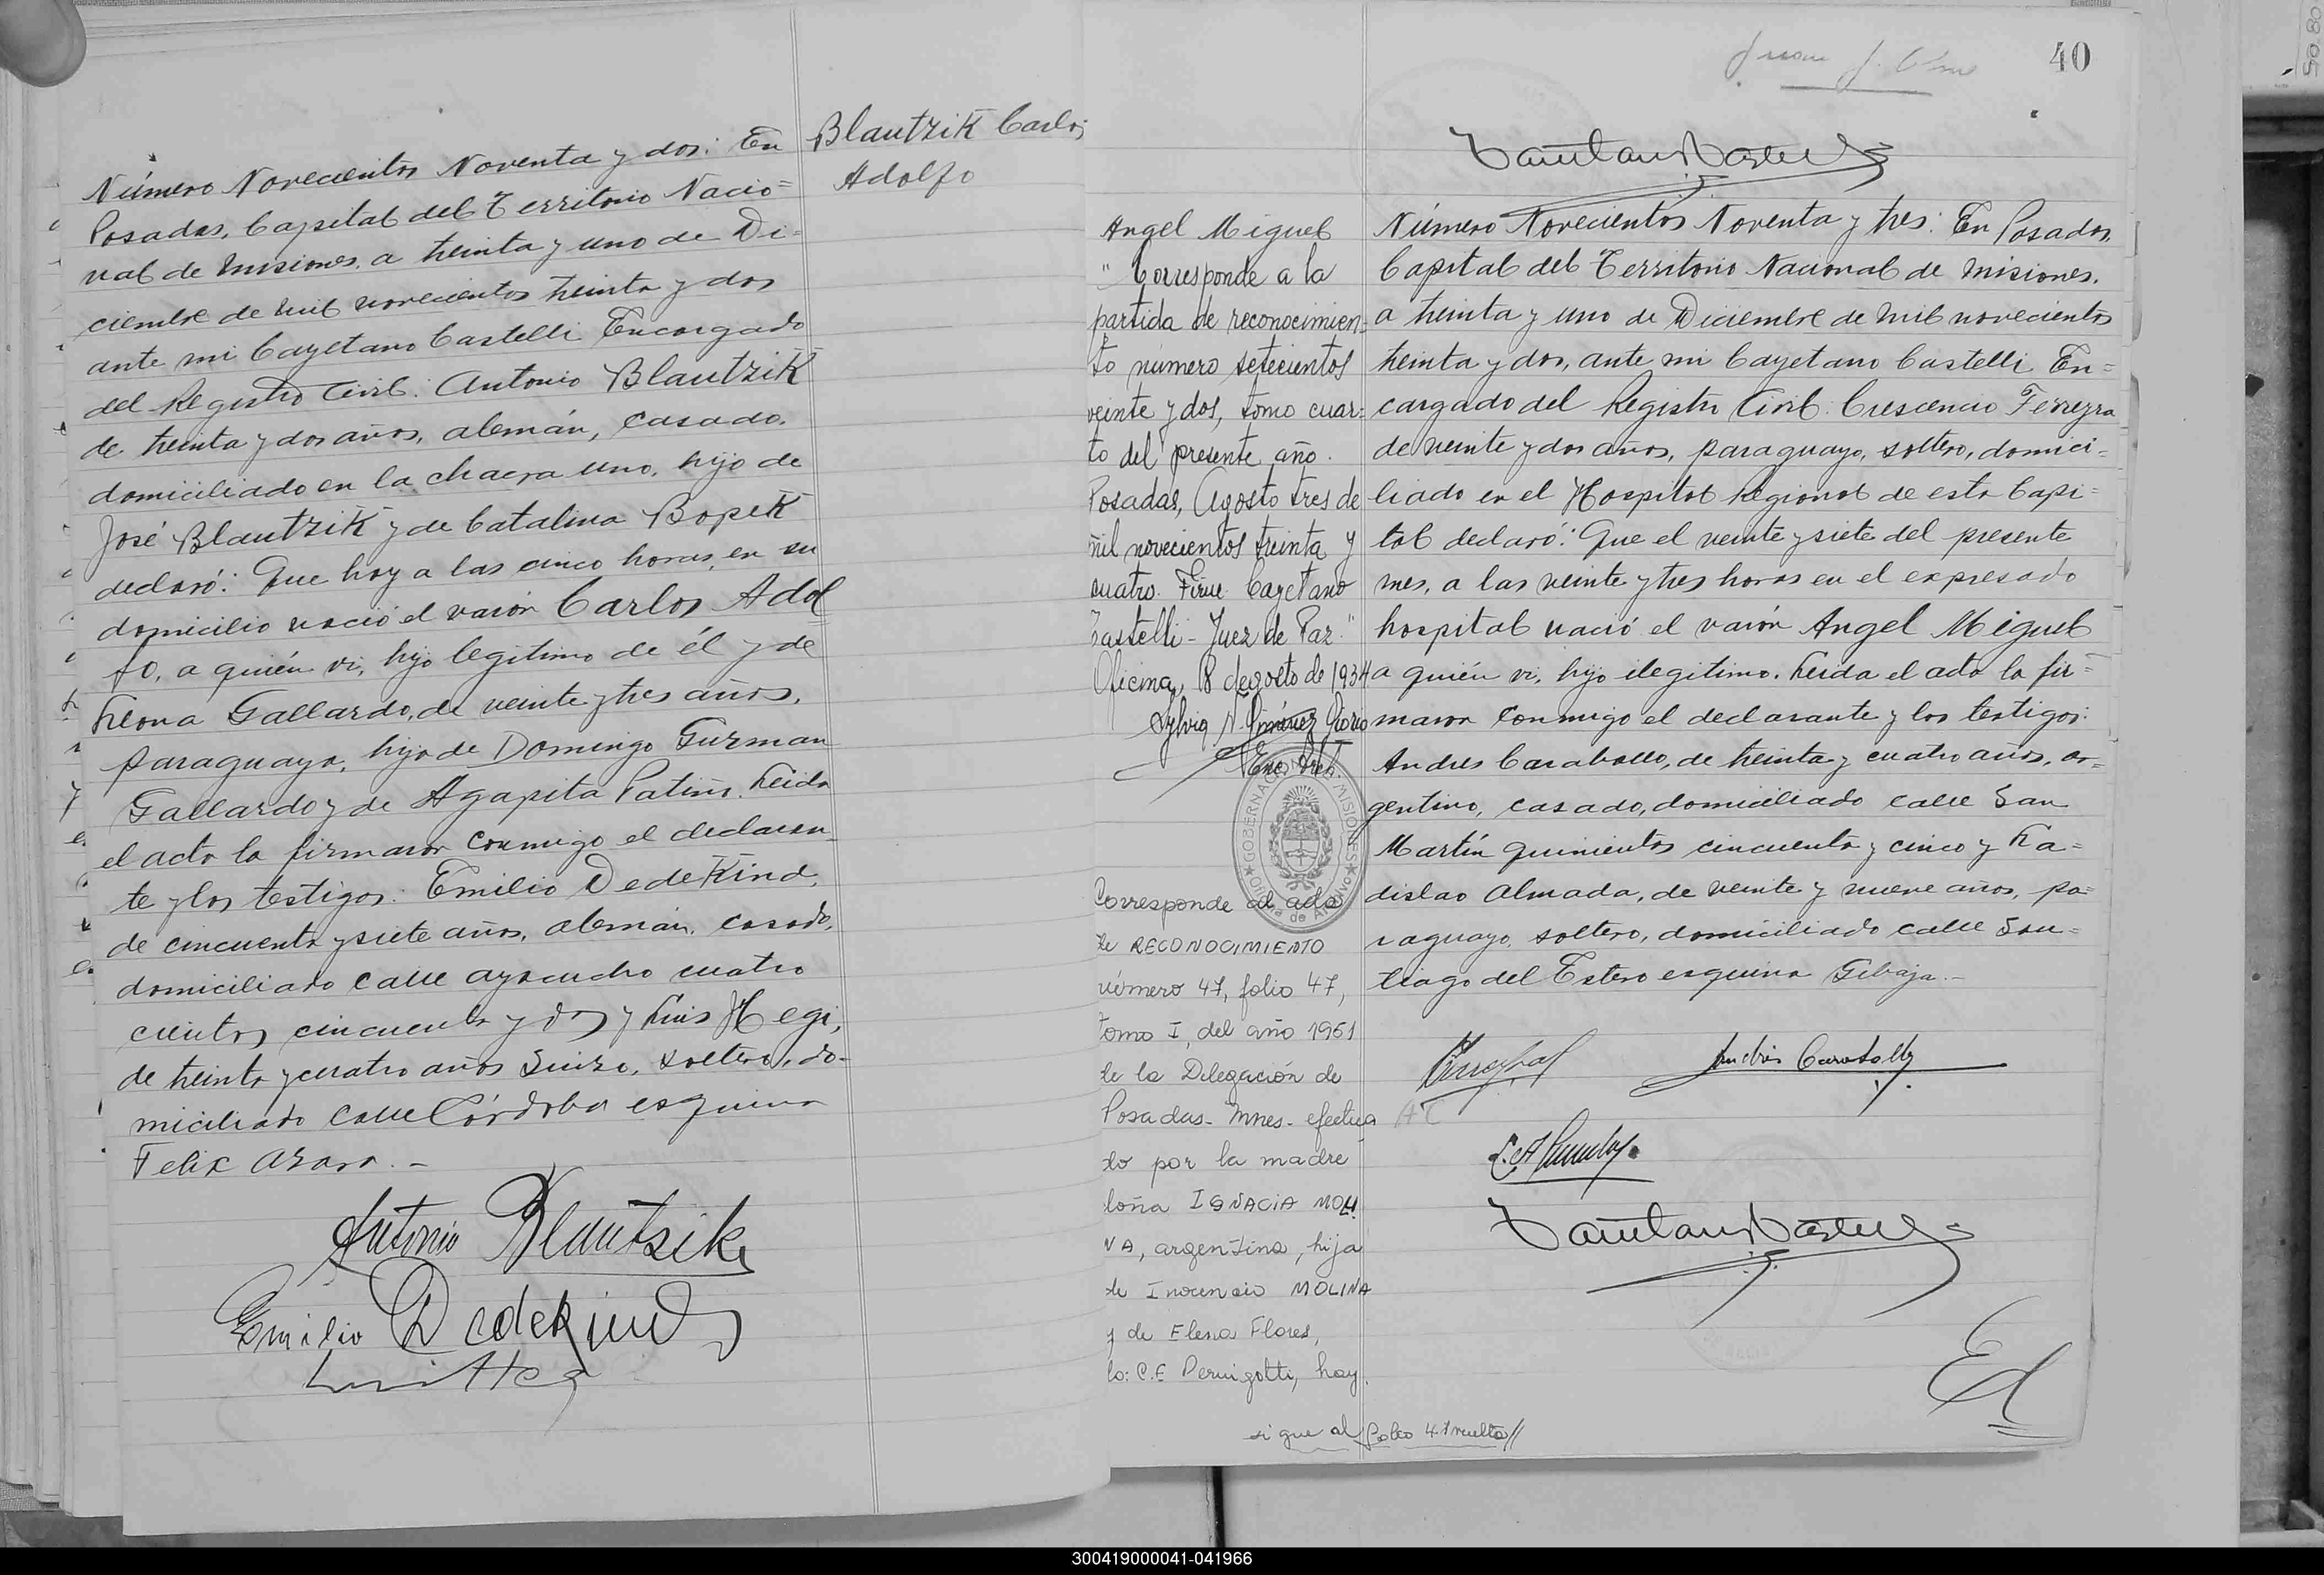 Número Novecientos Noventa y dos: En
Posadas, Capital del Territorio Nacio=
nal de Misiones, a treinta y uno de Di=
ciembre de mil novecientos treinta y dos
ante mi Cayetano Castelli Encargado
del Registro Civil: Antonio Blautzik
de treinta y dos años, alemán, casado,
domiciliado en la chacra uno, hijo de
José Blautzik y de Catalina Bopek
declaró: Que hoy a las cinco horas, en su
domicilio nació el varón Carlos Adol
fo, a quién vi, hijo legitimo de él y de
Gallardo, de veinte y tres años,
paraguaya, hija de Domingo Guzman
Gallardo y de Agapita Patiño. Leida
el acta la firmaron conmigo el declaran
te y los testigos: Emilio Dedekind,
de cincuenta y siete años, alemán, casado,
domiciliado calle ayacucho cuatro
cientos cincuenta y dos y Luis Hegi,
de treinta y cuatro años Suizo, soltero, do-
miciliado calle Córdoba esquina
Felix Azara. -
Antonio Blautzik
Emilio Dedekind
Blautzik Carlos
Adolfo
40
Angel Miguel
"Corresponde a la
partida de reconocimien=
to número setecientos
veinte y dos, tomo cuar=
to del presente año.
Posadas, Agosto tres de
mil novecientos treinta y
cuatro. Firme Cayetano
Castelli - Juez de Paz."
Oficina, 8 de agosto de 1934
Sylvia N. Giménez
GOBERNACION DE MISIONES
Oficina de Archivo
Corresponde al acta
de RECONOCIMIENTO
número 47, folio 47,
tomo I, del año 1961
de la Delegación de
Posadas- Mnes- efectua
do por la madre
doña IGNACIA MOLI
NA, argentina, hija
de Inocencio MOLINA
y de Elena Flores,
fdo: C.E Pernigotti, hoy.
sigue al folio 41 vuelta//
Número Novecientos Noventa y tres: En Posadas,
Capital del Territorio Nacional de Misiones,
a treinta y uno de Diciembre de mil novecientos
treinta y dos, ante mi Cayetano Castelli En=
cargado del Registro Civil: Crescencio Ferreyra
de veinte y dos años, paraguayo, soltero, domici=
liado en el Hospital Regional de esta Capi=
tal declaró: Que el veinte y siete del presente
mes, a las veinte y tres horas en el expresado
hospital nació el varón Angel Miguel
a quién vi, hijo ilegitimo. Leida el acta la fir=
maron conmigo el declarante y los testigos:
Andres Caraballo, de treinta y cuatro años, ar=
gentino, casado, domiciliado calle San
Martín quinientos cincuenta y cinco y La=
dislao Almada, de veinte y nueve años, pa=
raguayo, soltero, domiciliado calle San=
tiago del Estero esquina Gibaja.-
Andrés Caraballo
300419000041-041966